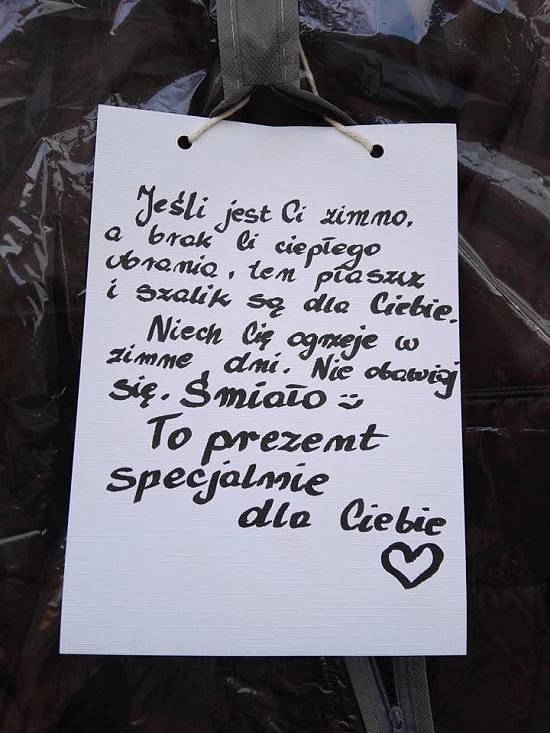 Jeśli jest Ci zimno,
a brak Ci ciepłego
ubrania, ten płaszcz
i szalik są dla Ciebie.
Niech Cię ogrzeje w
zimne dni. Nie obawiaj
się. Śmiało
To prezent
specjalnie
dla Ciebie